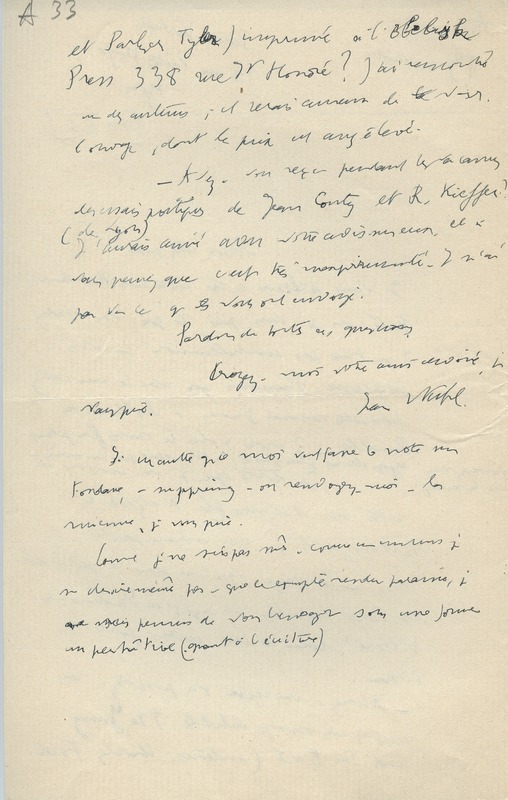 A 33
et Parker Tyler) imprimé à l'Obelisk
Press 338 rue St Honoré? J'ai rencontré
un des auteurs; et serais curieux de voir
l'ouvrage, dont le prix est assez élevé.
— Avez-vous reçu pendant les vacances
des essais poétiques de Jean Conty et R. Kieffer?
(de Lyon)
J'aurais aimé avoir votre avis sur eux, et si
vous pensez que c'est très inexpérimenté. Je n'ai
pas vu ce qu'ils vous ont envoyé.
Pardon de toutes ces questions,
Croyez-moi votre ami dévoué, je
vous prie.
Jean Wahl.
Si quelque moi veut faire la note sur
Fondane, — supprimez — ou renvoyez-moi — la
mienne, je vous prie.
Comme je ne suis pas sûr, comme
je ne désire même pas — que ce compte rendu paraisse, je
me suis permis de vous l'envoyer sous une forme
imparfaite (quant à l'écriture)